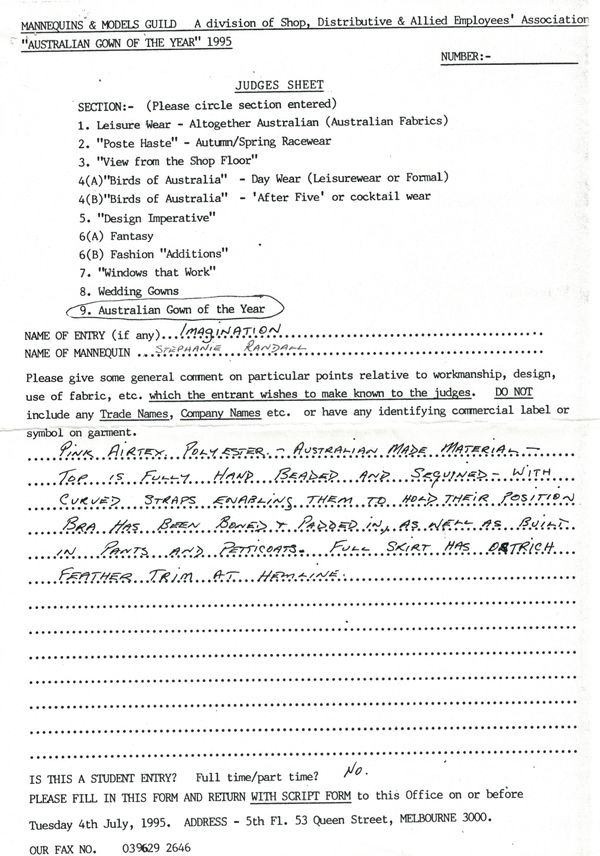 MANNEQUINS & MODELS GUILD A division of Shop, Distributive & Allied Employees' Association
"AUSTRALIAN GOWN OF THE YEAR" 1995
NUMBER:-
JUDGES SHEET
SECTION:- (Please circle section entered)
1. Leisure Wear - Altogether Australian (Australian Fabrics)
2. "Poste Haste" - Autumn/Spring Racewear
3. "View from the Shop Floor"
4(A)"Birds of Australia" - Day Wear (Leisurewear or Formal)
4(B)"Birds of Australia" - 'After Five' or cocktail wear
5. "Design Imperative"
6(A) Fantasy
6(B) Fashion "Additions"
7. "Windows that Work"
8. Wedding Gowns
9. Australian Gown of the Year
NAME OF ENTRY (if any)... IMAGINATION
NAME OF MANNEQUIN ... STEPHANIE RANDALL
Please give some general comment on particular points relative to workmanship, design,
use of fabric, etc. which the entrant wishes to make known to the judges. DO NOT
include any Trade Names, Company Names etc. or have any identifying commercial label or
symbol on garment.
PINK AIRTEX POLYESTER - AUSTRALIAN MADE MATERIAL -
TOP IS FULLY HAND BEADED AND SEQUINED - WITH
CURVED STRAPS ENABLING THEM TO HOLD THEIR POSITION
BRA HAS BEEN BONED & PADDED IN, AS WELL AS BUILT
IN PANTS AND PETTICOATS. FULL SKIRT HAS OSTRICH
FEATHER TRIM AT HEMLINE.
IS THIS A STUDENT ENTRY? Full time/part time? No.
PLEASE FILL IN THIS FORM AND RETURN WITH SCRIPT FORM to this Office on or before
Tuesday 4th July, 1995. ADDRESS - 5th Fl. 53 Queen Street, MELBOURNE 3000.
OUR FAX NO. 039629 2646